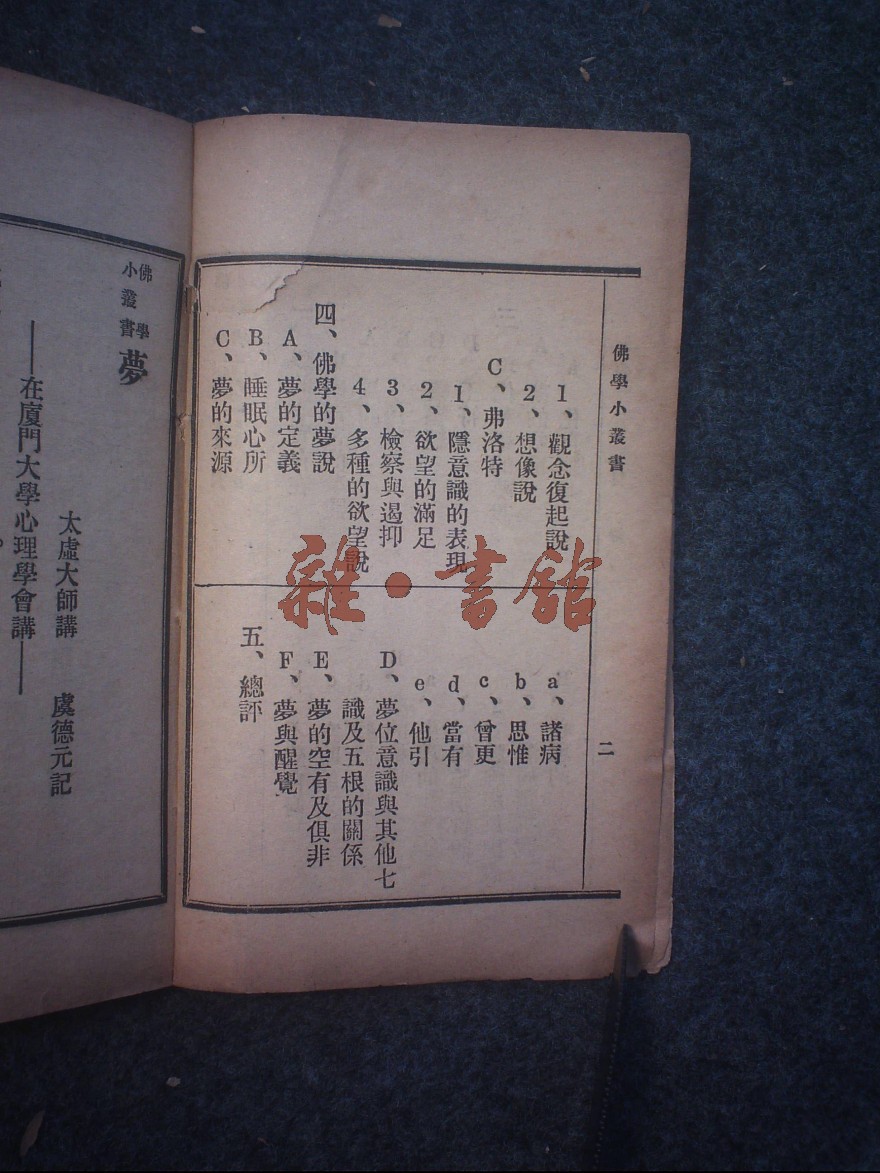 佛學小叢書
二
1、觀念復起說
2、想像說
C、弗洛特
1、隱意識的表現
2、欲望的滿足
3、檢察與遏抑
4、多種的欲望說
四、佛學的夢說
A、夢的定義
B、睡眠心所
C、夢的來源
a、諸病
b、思惟
c、曾更
d、當有
e、他引
D、夢位意識與其他七
識及五根的關係
E、夢的空有及俱非
F、夢與醒覺
五、總評
雜·書館
佛學
小叢書
夢
太虛大師講 虞德元記
——在廈門大學心理學會講——